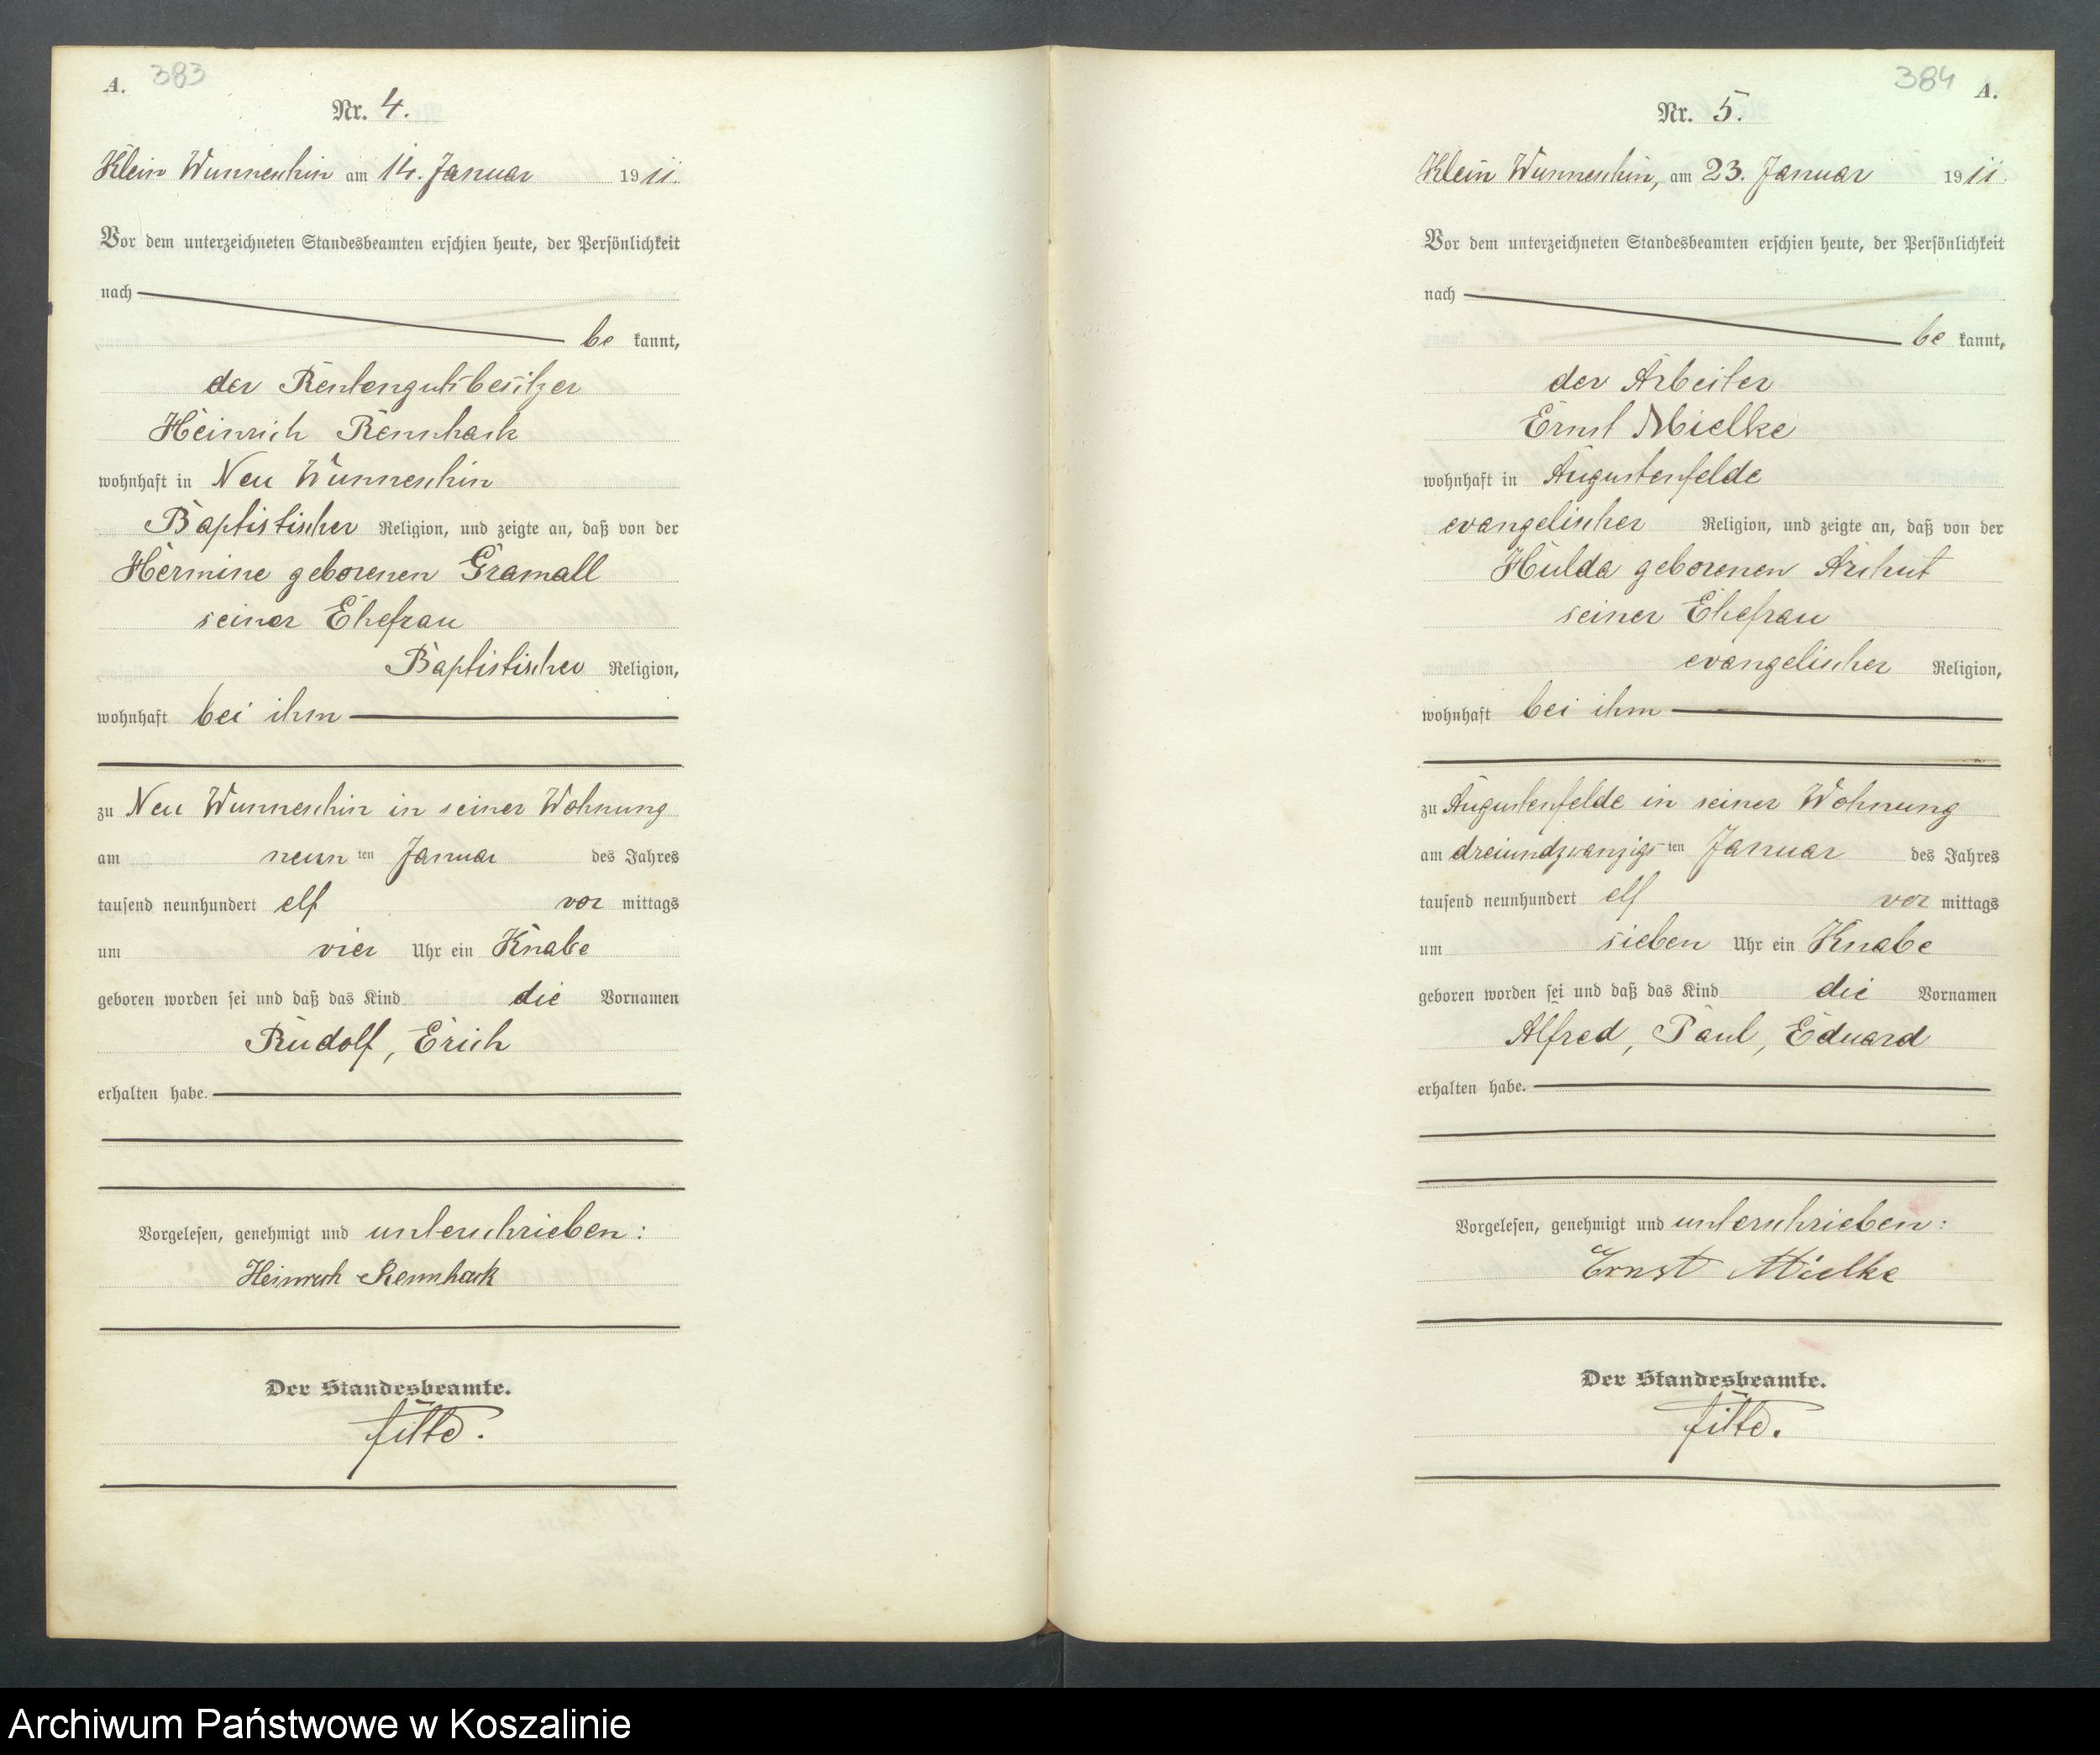 A. 383
Nr. 4.
Klein Wunneschin am 14. Januar 1911.
Vor dem unterzeichneten Standesbeamten erschien heute, der Persönlichkeit
nach
be kannt,
der Rentengutsbesitzer
Heinrich Rennhack
wohnhaft in Neu Wunneschin
Baptistischer Religion, und zeigte an, daß von der
Hermine geborenen Gramall
seiner Ehefrau
Baptistischer Religion,
wohnhaft bei ihm
zu Neu Wunneschin in seiner Wohnung
am neun ten Januar des Jahres
tausend neunhundert elf vor mittags
um vier Uhr ein Knabe
geboren worden sei und daß das Kind die Vornamen
Rudolf, Erich
erhalten habe.
Vorgelesen, genehmigt und unterschrieben:
Heinrich Rennhack
Der Standesbeamte.
384 A.
Nr. 5.
Klein Wunneschin, am 23. Januar 1911.
Vor dem unterzeichneten Standesbeamten erschien heute, der Persönlichkeit
nach
be kannt,
der Arbeiter
Ernst Mielke
wohnhaft in Augustenfelde
evangelischer Religion, und zeigte an, daß von der
Hulda geborenen Arihut
seiner Ehefrau
evangelischer Religion,
wohnhaft bei ihm
zu Augustenfelde in seiner Wohnung
am dreiundzwanzigs ten Januar des Jahres
tausend neunhundert elf vor mittags
um sieben Uhr ein Knabe
geboren worden sei und daß das Kind die Vornamen
Alfred, Paul, Eduard
erhalten habe.
Vorgelesen, genehmigt und unterschrieben:
Ernst Mielke
Der Standesbeamte.
Archiwum Państwowe w Koszalinie